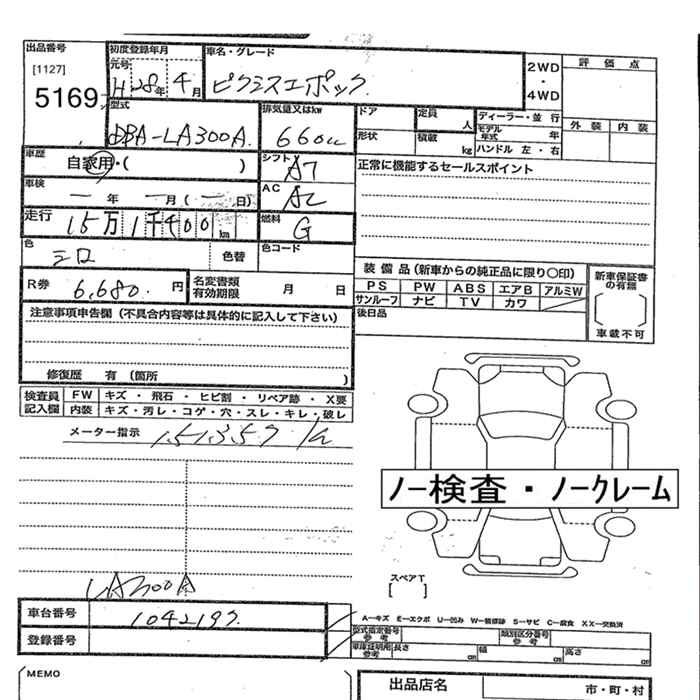 出品番号
[1127]
5169
初度登録年月
元号
H 28年 4月
車名・グレード
ピクシスエポック
2WD
・
4WD
評価点
外装 内装
型式
DBA-LA300A
排気量又はkw
660cc
ドア
定員
人
形状
積載
kg
ディーラー・並行
モデル年式 年
ハンドル 左・右
車歴
自家用・( )
シフト
A7
正常に機能するセールスポイント
車検
年 月( 日)
AC
AC
走行
15万1千400km
燃料
G
色
シロ
色替
色コード
R券
6,680円
名変書類
有効期限 月 日
装備品(新車からの純正品に限り〇印)
PS PW ABS エアB アルミW
サンルーフ ナビ TV カワ
新車保証書の有無
[ ]
車載不可
後日品
注意事項申告欄(不具合内容等は具体的に記入して下さい)
修復歴 有(箇所 )
検査員
記入欄
FW キズ・飛石・ヒビ割・リペア跡・X要
内装 キズ・汚レ・コゲ・穴・スレ・キレ・破レ
メーター指示 151357 km
ノー検査・ノークレーム
スペアT
[ ]
LA300A
車台番号
1042197
登録番号
A−キズ E−エクボ U−凹み W−補修跡 S−サビ C−腐食 XX−交換済
型式指定番号
参考
類別区分番号
参考
車庫証明用
参考
長さ cm 幅 cm 高さ cm
MEMO
出品店名
市・町・村